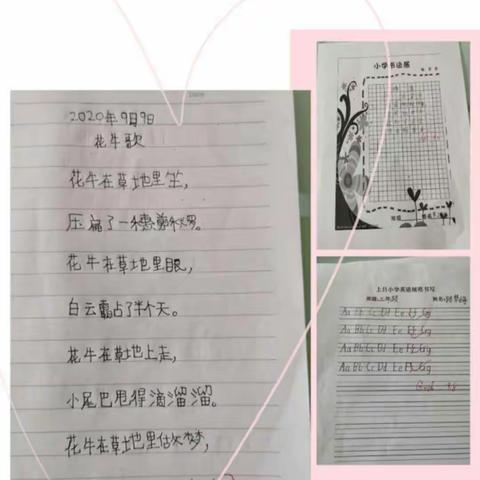 2020年9月9日
花牛歌
花牛在草地里坐,
压扁了一穗剪秋罗。
花牛在草地里眼,
白云霸占了半个天。
花牛在草地上走,
小尾巴甩得滴溜溜。
花牛在草地里做梦,
小学书法展
小学英语规范书写
Aa Bb Cc Dd Ee Ff Gg
Aa Bb Cc Dd Ee Ff Gg
Aa Bb Cc Dd Ee Ff Gg
Aa Bb Cc Dd Ee Ff Gg
Good